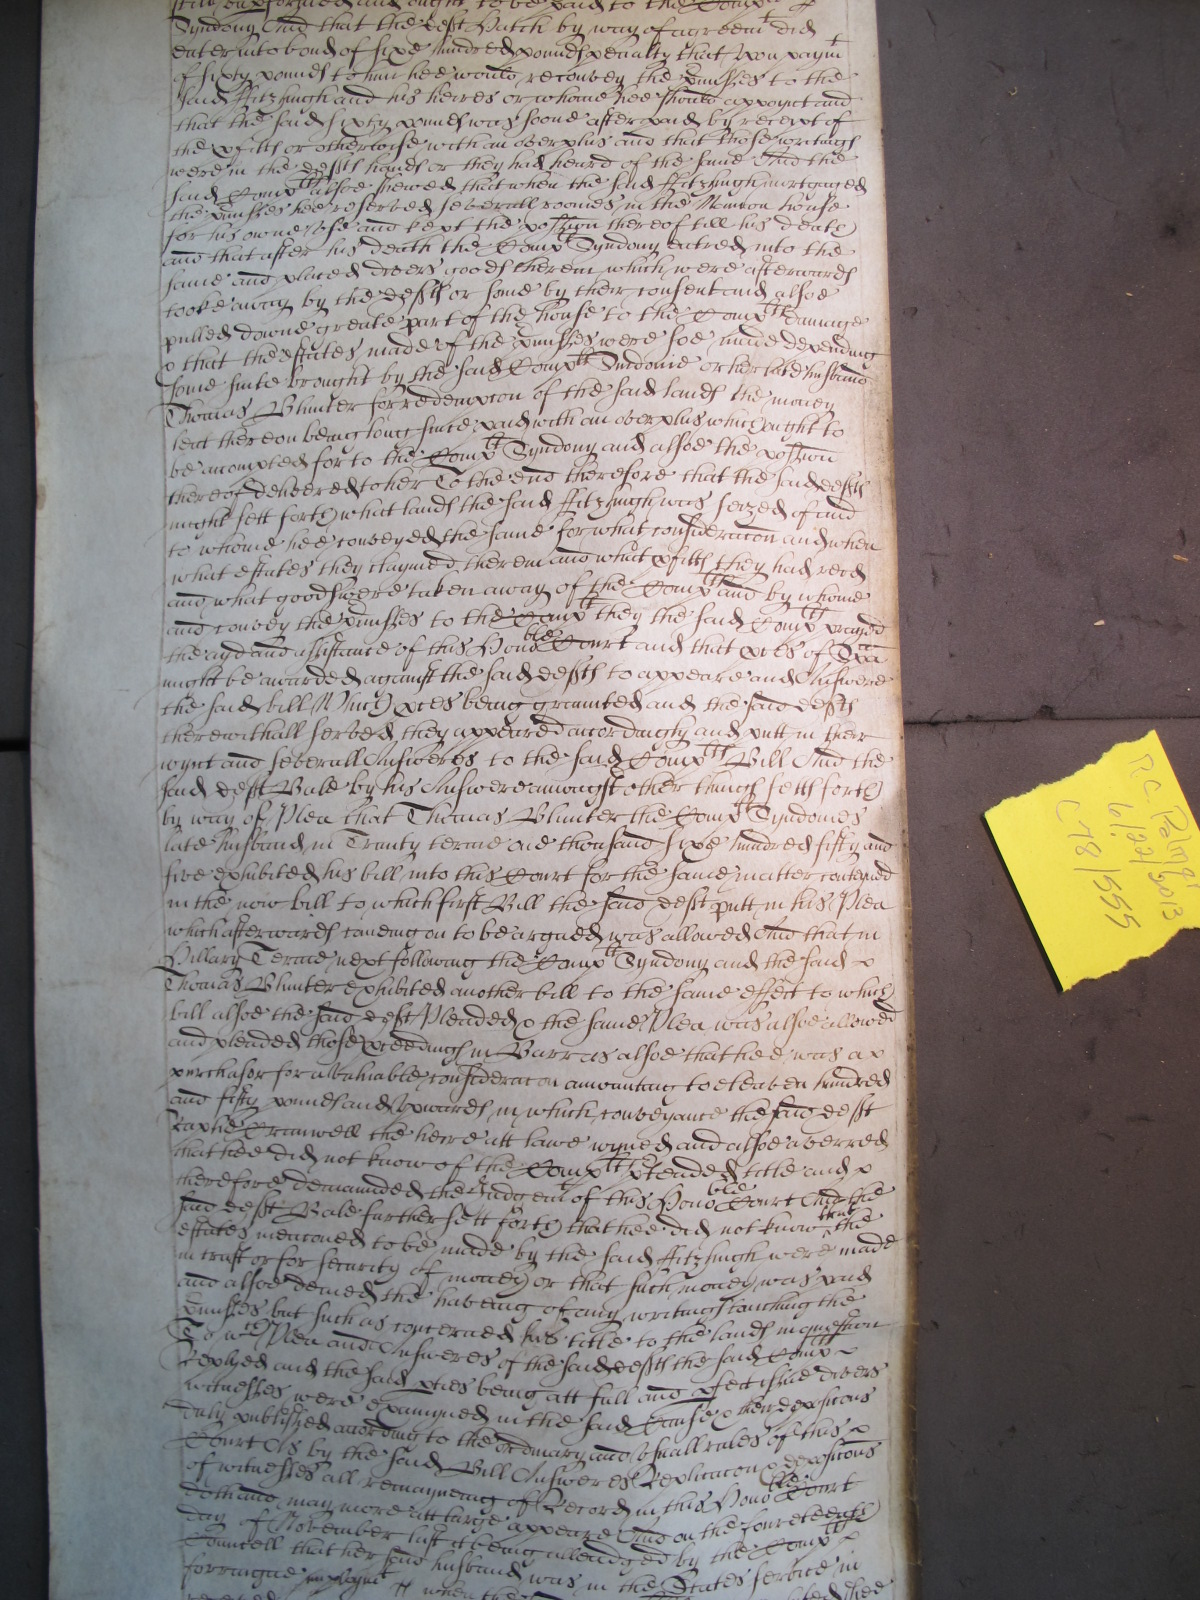 Syndony And that the deft Hatch by way of agreemt did
enter into bond of sixe hundred pounds penalty that upon paymt
of sixty pounds to him hee would reconvey the pmisses to the
said ffitzhugh and his heires or whome hee should appoynt and
that the said sixty pounds was soone after paid by receipt of
the pfitts or otherwise with an overplus and that those writings
were in the defts hands or they had heard of the same And the
said Complts alsoe shewed that when the said ffitzhugh mortgaged
the pmisses hee reserved severall roomes in the Mancon house
for his owne use and kept the possion thereof till his death
and that after his death the Complt Syndony entred into the
same and placed divers goods therein which were afterwards
tooke away by the defts or some by their consent and alsoe
pulled downe greate part of the house to the Complts damage
& that the estates made of the pmisses were soe made depending
some suite brought by the said Complt Sindonie or her late husband
Thomas Blunter for redempcon of the said lands the money
lent thereon being long since paid with an overplus which ought to
be accompted for to the Complt Syndony and alsoe the possion
thereof delivered to her To the end therefore that the said defts
might sett forth what lands the said ffitzhugh was seized of and
to whome hee conveyed the same for what consideracon and when
what estates they claymed therein and what pfitts they had recd
and what goods were taken away of the Complts and by whome
and convey the pmisses to the Complt they the said Complts prayed
the ayd and assistance of this Honoble Court and that pces of Spa
might be awarded against the said defts to appeare and Answere
the said bill Which pces being graunted and the said defts
therewithall served they appeared accordingly and putt in their
ioynt and severall Answeres to the said Complts Bill And the
said deft Bale by his Answere amongst other things setts forth
by way of Plea that Thomas Blunter the Complt Syndonies
late husband in Trinity terme one thousand sixe hundred fifty and
five exhibited his bill into this Court for the same matter conteyned
in the now bill to which first Bill the said deft putt in his Plea
which afterwards comeing on to be argued was allowed And that in
Hillary Terme next following the Complt Syndony and the said
Thomas Blunter exhibited another bill to the same effect to which
bill alsoe the said deft Pleaded & the same Plea was alsoe allowed
and pleaded those pceedings in Barr as alsoe that hee was a
purchasor for a valuable consideracon amounting to eleaven hundred
and fifty pounds and upwards in which conveyance the said deft
Raphe Cranwell the heire att lawe ioyned and alsoe averred
that hee did not know of the Complts ptended title and
therefore demaunded the Judgemt of this Honoble Court And the
said deft Bale further sett forth that hee did not know that the
estates menconed to be made by the said ffitzhugh were made
in trust or for security of money or that such money was paid
and alsoe denied the haveing of any writings touching the
pmisses but such as concerned his title to the lands in question
To wch Plea and Answeres of the said defts the said Complts
Replyed and the said pties being att full and pfect issue divers
witnesses were examyned in the said Cause & their deposicons
duly published according to the ordinary and usuall rules of this
Court As by the said Bill Answeres Replicacon & deposicons
of witnesses all remayneing of Record in this Honoble Court
doth and may more att large appeare And on the fourteenth
day of November last it being alleadged by the Complts
Councell that her said husband was in the States service in
forraigne
R.C. Palmer
6/22/2013
C78/555